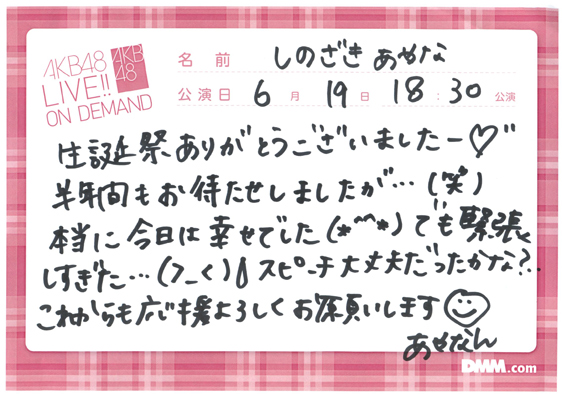 AKB48
LIVE!!
ON DEMAND
AKB
48
名前 しのざき あやな
公演日 6月 19日 18:30 公演
生誕祭ありがとうございましたー♡"
半年間もお待たせしましたが…(笑)
本当に今日は幸せでした(*^^*)でも緊張
しすぎた…(>_<)スピーチ大丈夫だったかな?..
これからも応援よろしくお願いします☺
あやなん
DMM.com